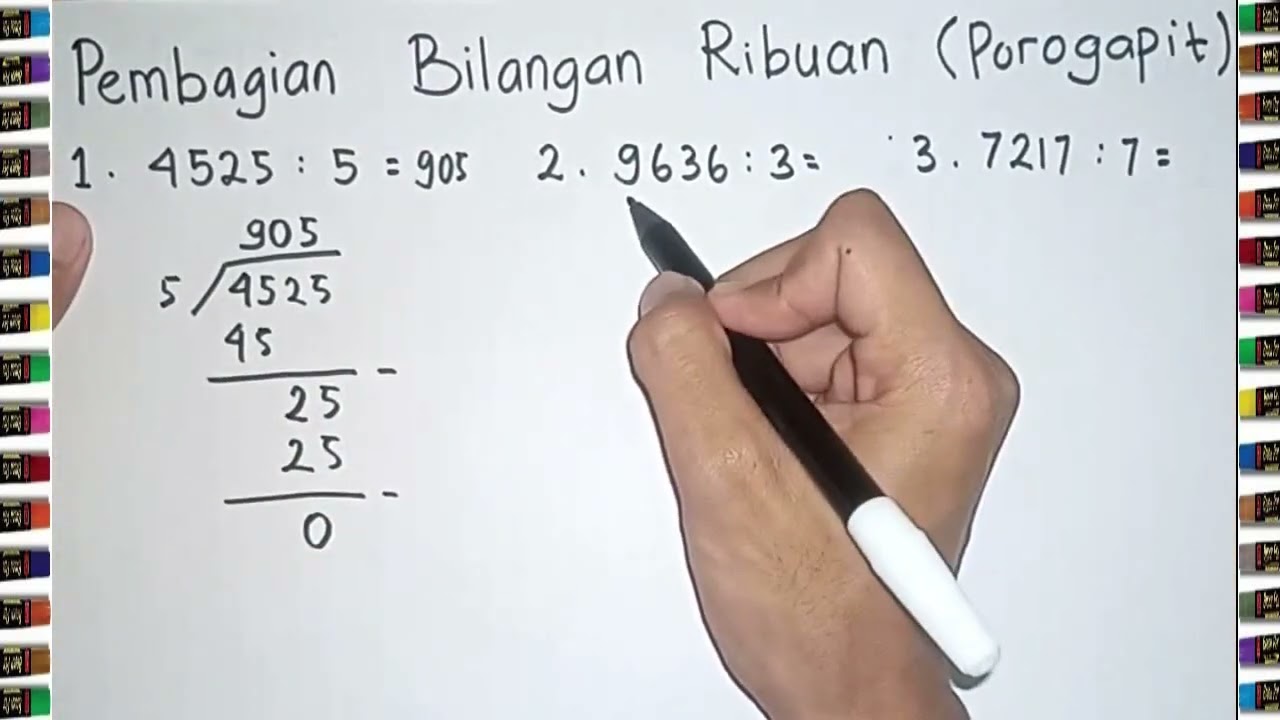 Pembagian Bilangan Ribuan (Porogapit)
1. 4525 : 5 = 905
2. 9636 : 3 =
3. 7217 : 7 =
905
5 / 4525
45
-
25
25
-
0